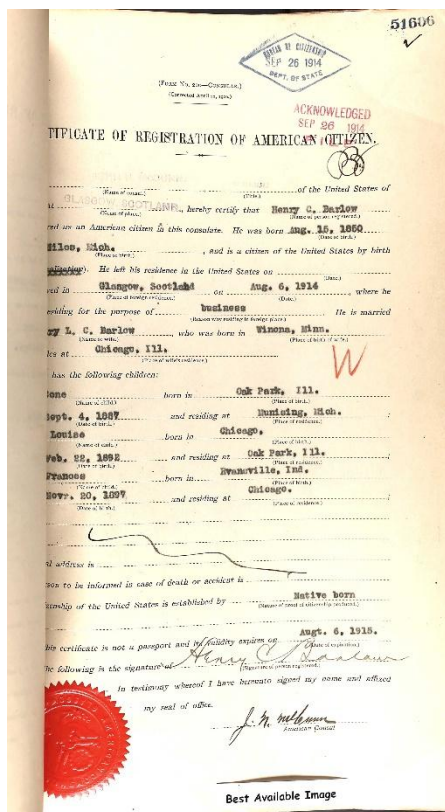 51606
BUREAU OF CITIZENSHIP
SEP 26 1914
DEPT. OF STATE
(Corrected April 10, 1912.)
ACKNOWLEDGED
SEP 26 1914
TIFICATE OF REGISTRATION OF AMERICAN CITIZEN.
of the United States of
(Name of consul.) (Title.)
GLASGOW, SCOTLAND, hereby certify that Henry C. Barlow
(Name of place.) (Name of person registered.)
ed as an American citizen in this consulate. He was born Aug. 15, 1850
(Date of birth.)
Mich., and is a citizen of the United States by birth
(Place of birth.)
He left his residence in the United States on
(Date.)
ved in Glasgow, Scotland on Aug. 6, 1914 where he
(Place of foreign residence.) (Date.)
esiding for the purpose of business He is married
(Reason for residing in foreign place.)
ry L. C. Barlow, who was born in Winona, Minn.
(Name of wife.) (Place of birth of wife.)
es at Chicago, Ill.
(Place of wife's residence.)
W
has the following children:
one born in Oak Park, Ill.
(Name of child.) (Place of birth.)
Sept. 4, 1887 and residing at Munising, Mich.
(Date of birth.) (Place of residence.)
Louise born in Chicago.
(Name of child.) (Place of birth.)
Feb. 22, 1892 and residing at Oak Park, Ill.
(Date of birth.) (Place of residence.)
Frances born in Evansville, Ind.
(Name of child.) (Place of birth.)
Novr. 20, 1897 and residing at Chicago.
(Date of birth.) (Place of residence.)
al address is
son to be informed in case of death or accident is
zenship of the United States is established by Native born
(Nature of proof of citizenship produced.)
his certificate is not a passport and its validity expires on Augt. 6, 1915.
(Date of expiration.)
he following is the signature of Henry C. Barlow
(Signature of person registered.)
In testimony whereof I have hereunto signed my name and affixed
my seal of office.
American Consul
Best Available Image